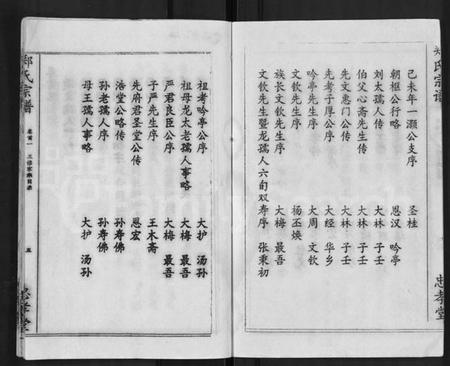 郑氏宗谱
己未年一灏公支序 圣桂
朝枢公行略 恩汉 吟亭
刘太孺人传 大林 子壬
伯父心斋先生传 大林 子壬
先文惠门公传 大林 子壬
先考子厚公序 大经 华乡
吟亭先生序 大周 文钦
文钦先生序 杨丕焕
族长文钦先生序 大梅 最吾
文钦先生暨龙孺人六旬双寿序 张秉初
忠孝堂
祖考吟亭公序 大护 汤孙
祖母龙太老孺人事略 大梅 最吾
严君良臣公序 大梅 最吾
子严先生序 王木斋
先府君圣堂公传 恩宏
浩堂公传 孙寿佛
孙老孺人序 孙寿佛
母王孺人事略 大护 汤孙
郑氏宗谱
卷首一
五
忠孝堂